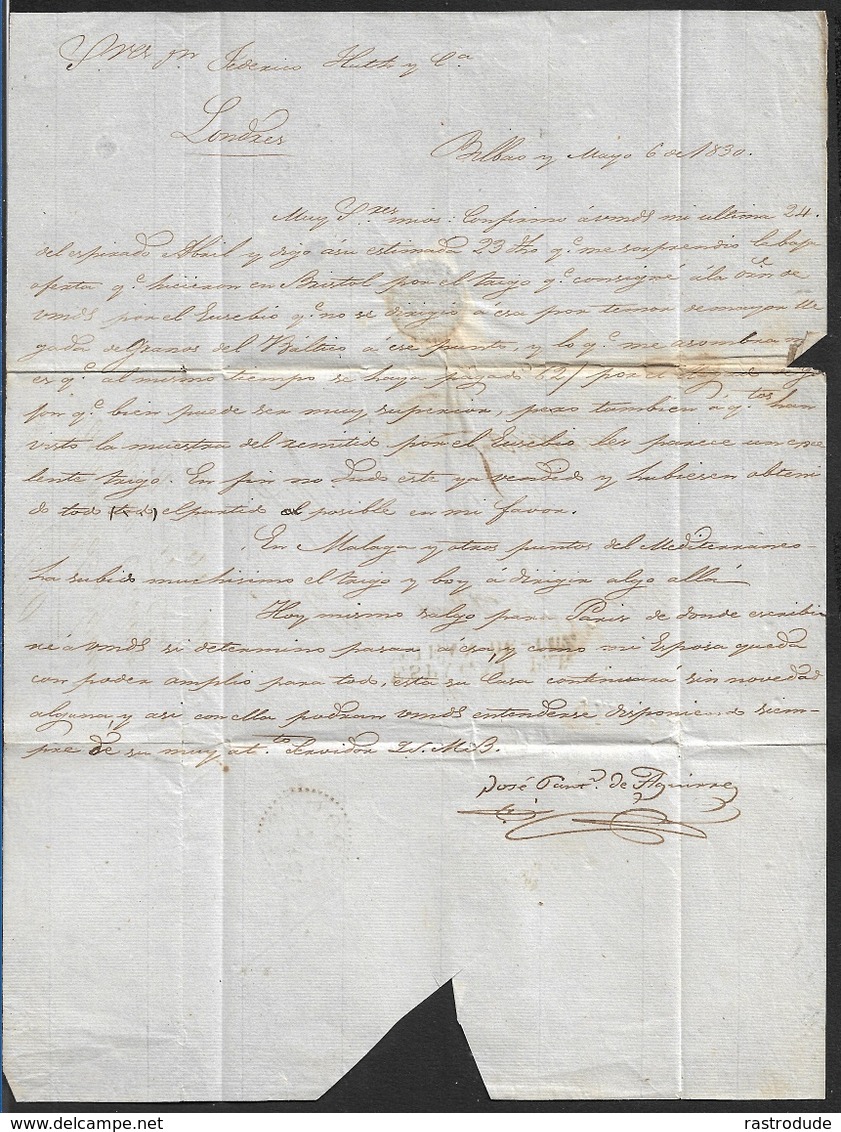 S.res D.n Federico Huth y C.a
Londres
Bilbao y Mayo 6 de 1830.
Muy S.res mios: Confirmo á vmds mi ultima 24.
del espirado Abril y digo á su estimada 23 dho q.e me sorprendio la baja
oferta q.e hicieron en Bristol por el trigo q.e consigné á la orn de
vmds por el Eusebio q.e no se dirigió a esa por temor de mayor lle
gada de Granos del Báltico á ese punto, y lo q.e me asombra
es q.e al mismo tiempo se haya pagado 62/ por el
q.e bien puede ser muy superior, pero tambien á q.tos han
visto la muestra del remitido por el Eusebio les parece un exce
lente trigo. En fin no dudo esté ya vendido y hubiesen obteni
do todo el partido posible en mi favor.
En Malaga y otros puntos del Mediterraneo
ha subido muchisimo el trigo y boy á dirigir algo allá
Hoy mismo salgo para Paris de donde escribi
ré á vmds si determino pasar á esa, y como mi Esposa queda
con poder amplio para todo, esta su Casa continuará sin novedad
alguna, y asi con ella podran vmds entenderse disponiendo siem-
pre de su muy at.to Servidor Q.S.M.B.
José Pant.n de Aguirre
rastrodude